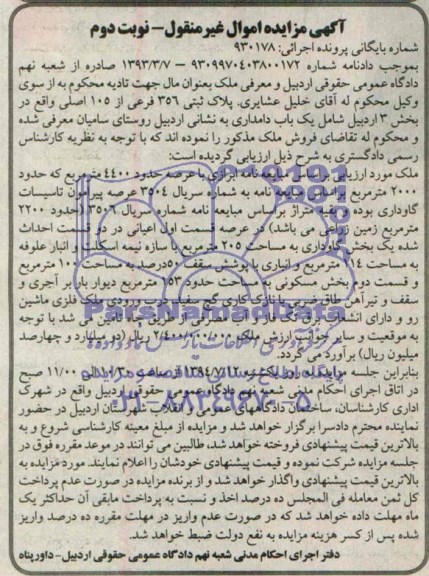 آگهی مزایده اموال غیرمنقول – نوبت دوم
شماره بایگانی پرونده اجرائی: ۹۳۰۱۷۸
بموجب دادنامه شماره ۹۳۰۹۹۷۰۴۰۳۸۰۰۱۷۲ – ۱۳۹۳/۳/۷ صادره از شعبه نهم
دادگاه عمومی حقوقی اردبیل و معرفی ملک بعنوان مال جهت تادیه محکوم به از سوی
وکیل محکوم له آقای خلیل عشایری، پلاک ثبتی ۳۵۶ فرعی از ۱۰۵ اصلی واقع در
بخش ۳ اردبیل شامل یک باب دامداری به نشانی اردبیل روستای سامیان معرفی شده
و محکوم له تقاضای فروش ملک مذکور را نموده اند که با توجه به نظریه کارشناس
رسمی دادگستری به شرح ذیل ارزیابی گردیده است:
ملک مورد ارزیابی برابر مبایعه نامه ابرازی با عرصه حدود ۴۴۰۰ مترمربع که حدود
۲۰۰۰ مترمربع براساس مبایعه نامه به شماره سریال ۳۵۰۴ عرصه پیرامون تاسیسات
گاوداری بوده و بقیه متراژ براساس مبایعه نامه شماره سریال ۳۵۰۶ (حدود ۲۲۰۰
مترمربع زمین زراعی می باشد) در عرصه قسمت اول اعیانی در دو قسمت احداث
شده یک بخش گاوداری به مساحت ۲۰۵ مترمربع با سازه نیمه اسکلت و انبار علوفه
به مساحت ۱۱۴ مترمربع و انباری با پوشش سقف ۵۰درصد به مساحت ۱۰۰ مترمربع
و قسمت دوم بخش مسکونی به مساحت حدود ۵۳ مترمربع دیوار بار بر آجری و
سقف و تیرآهن طاق ضربی با نازک کاری گچ سفید، درب ورودی ملک فلزی ماشین
رو و دارای انشعاب برق تک فاز و آب مصرفی از طریق چاه تامین می شد با توجه
به موقعیت و سایر جوانب ارزش ملک ۲/۴۰۰/۰۰۰/۰۰۰ ریال (دو میلیارد و چهارصد
میلیون ریال) برآورد می گردد.
بنابراین جلسه مزایده روز یکشنبه ۱۳۹۴/۷/۱۲ از ساعت ۱۰/۳۰ الی ۱۱/۰۰ صبح
در اتاق اجرای احکام مدنی شعبه نهم دادگاه عمومی حقوقی اردبیل واقع در شهرک
اداری کارشناسان، ساختمان دادگاههای عمومی و انقلاب شهرستان اردبیل در حضور
نماینده محترم دادسرا برگزار خواهد شد و مزایده از مبلغ معینه کارشناسی شروع و به
بالاترین قیمت پیشنهادی فروخته خواهد شد، طالبین می توانند در موعد مقرره فوق در
جلسه مزایده شرکت نموده و قیمت پیشنهادی خودشان را اعلام نمایند. مورد مزایده به
بالاترین قیمت پیشنهادی واگذار خواهد شد و از برنده مزایده در صورت عدم پرداخت
کل ثمن معامله فی المجلس ده درصد اخذ و نسبت به پرداخت مابقی آن حداکثر یک
ماه مهلت داده خواهد شد که در صورت عدم واریز در مهلت مقرره ده درصد واریز
شده پس از کسر هزینه مزایده به نفع دولت ضبط خواهد شد.
دفتر اجرای احکام مدنی شعبه نهم دادگاه عمومی حقوقی اردبیل– داورپناه
ParsNamadData
۰۲۱-۸۸۳۴۹۶۷۰-۵